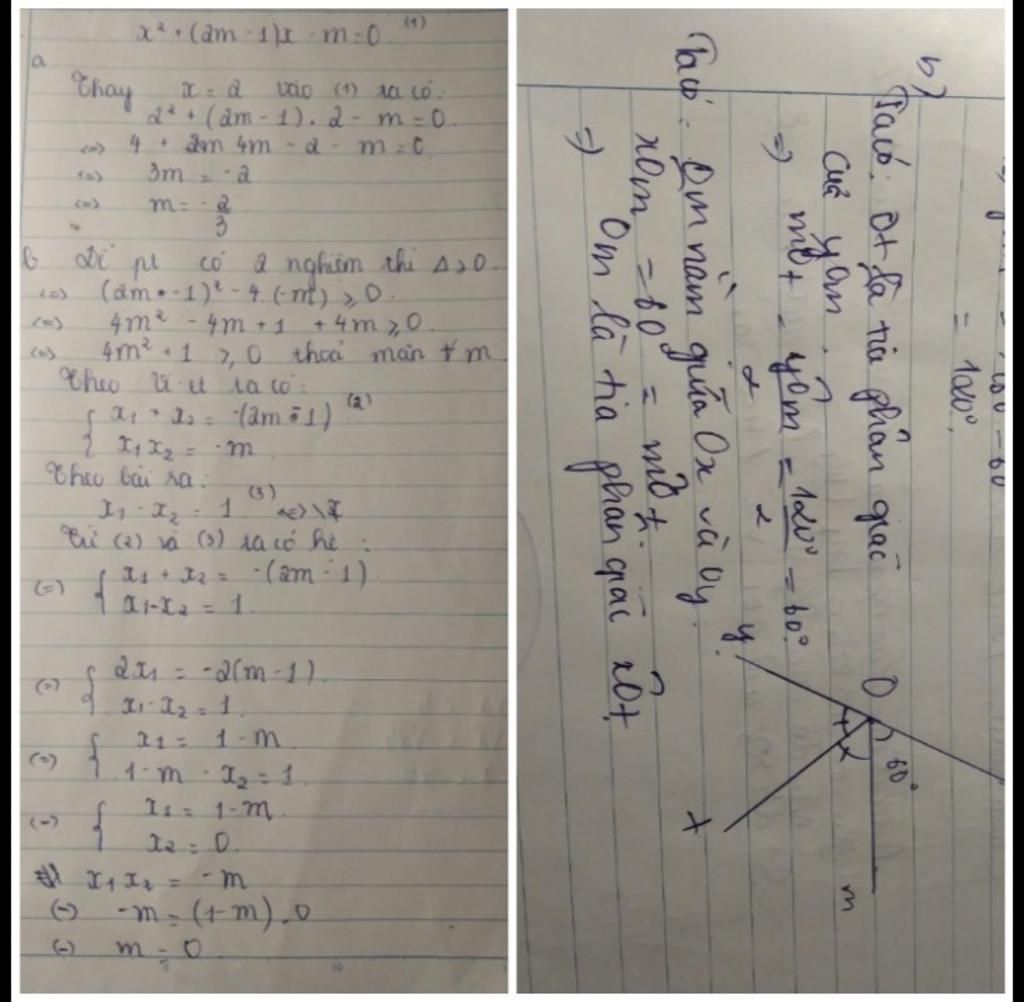 x² + (2m - 1)x - m = 0 (1)
a
Thay x = 2 vào (1) ta có:
2² + (2m - 1). 2 - m = 0
(=) 4 + 4m - 2 - m = 0
(=) 3m = -2
(=) m = -2/3
b Để pt có 2 nghiệm thì Δ ≥ 0
(=) (2m - 1)² - 4.(-m) ≥ 0
(=) 4m² - 4m + 1 + 4m ≥ 0
(=) 4m² + 1 ≥ 0 thoả mãn ∀ m
Theo Vi-et ta có:
{ x₁ + x₂ = -(2m - 1) (2)
x₁x₂ = -m
Theo bài ra:
x₁ - x₂ = 1 (3)
Từ (2) và (3) ta có hệ :
(=) { x₁ + x₂ = -(2m - 1)
x₁ - x₂ = 1
(=) { 2x₁ = -2(m - 1)
x₁ - x₂ = 1
(=) { x₁ = 1 - m
1 - m - x₂ = 1
(=) { x₁ = 1 - m
x₂ = 0
x₁x₂ = -m
(=) -m = (1 - m).0
(=) m = 0
= 120°
b)
Ta có: Ot là tia phân giác
của yOm.
=) mOt = yOm/2 = 120°/2 = 60°
Ta có: Om nằm giữa Ox và Oy.
xOm = 60° = mOt.
=) Om là tia phân giác xOt
y
O
60°
t
m